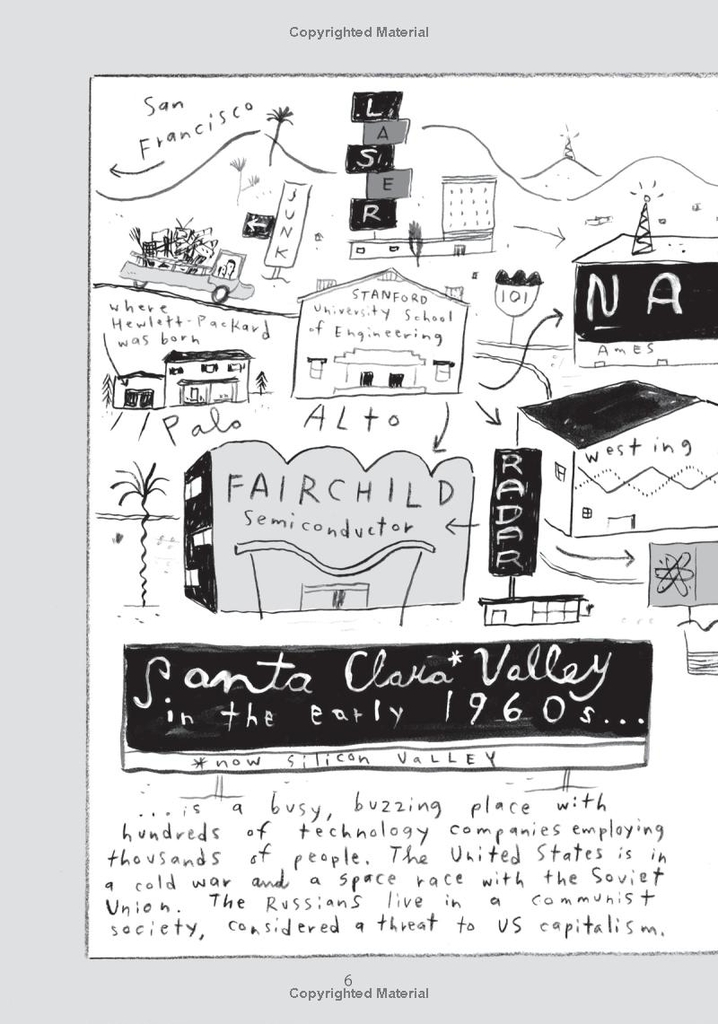 Copyrighted Material
San
Francisco
L
A
S
E
R
JUNK
where
Hewlett-Packard
was born
STANFORD
University School
of Engineering
101
NA
Ames
Palo ALto
westing
FAIRCHILD
Semiconductor
RADAR
Santa Clara* Valley
in the early 1960s...
*now Silicon Valley
...is a busy, buzzing place with
hundreds of technology companies employing
thousands of people. The United States is in
a cold war and a space race with the Soviet
Union. The Russians live in a communist
society, considered a threat to US capitalism.
6
Copyrighted Material